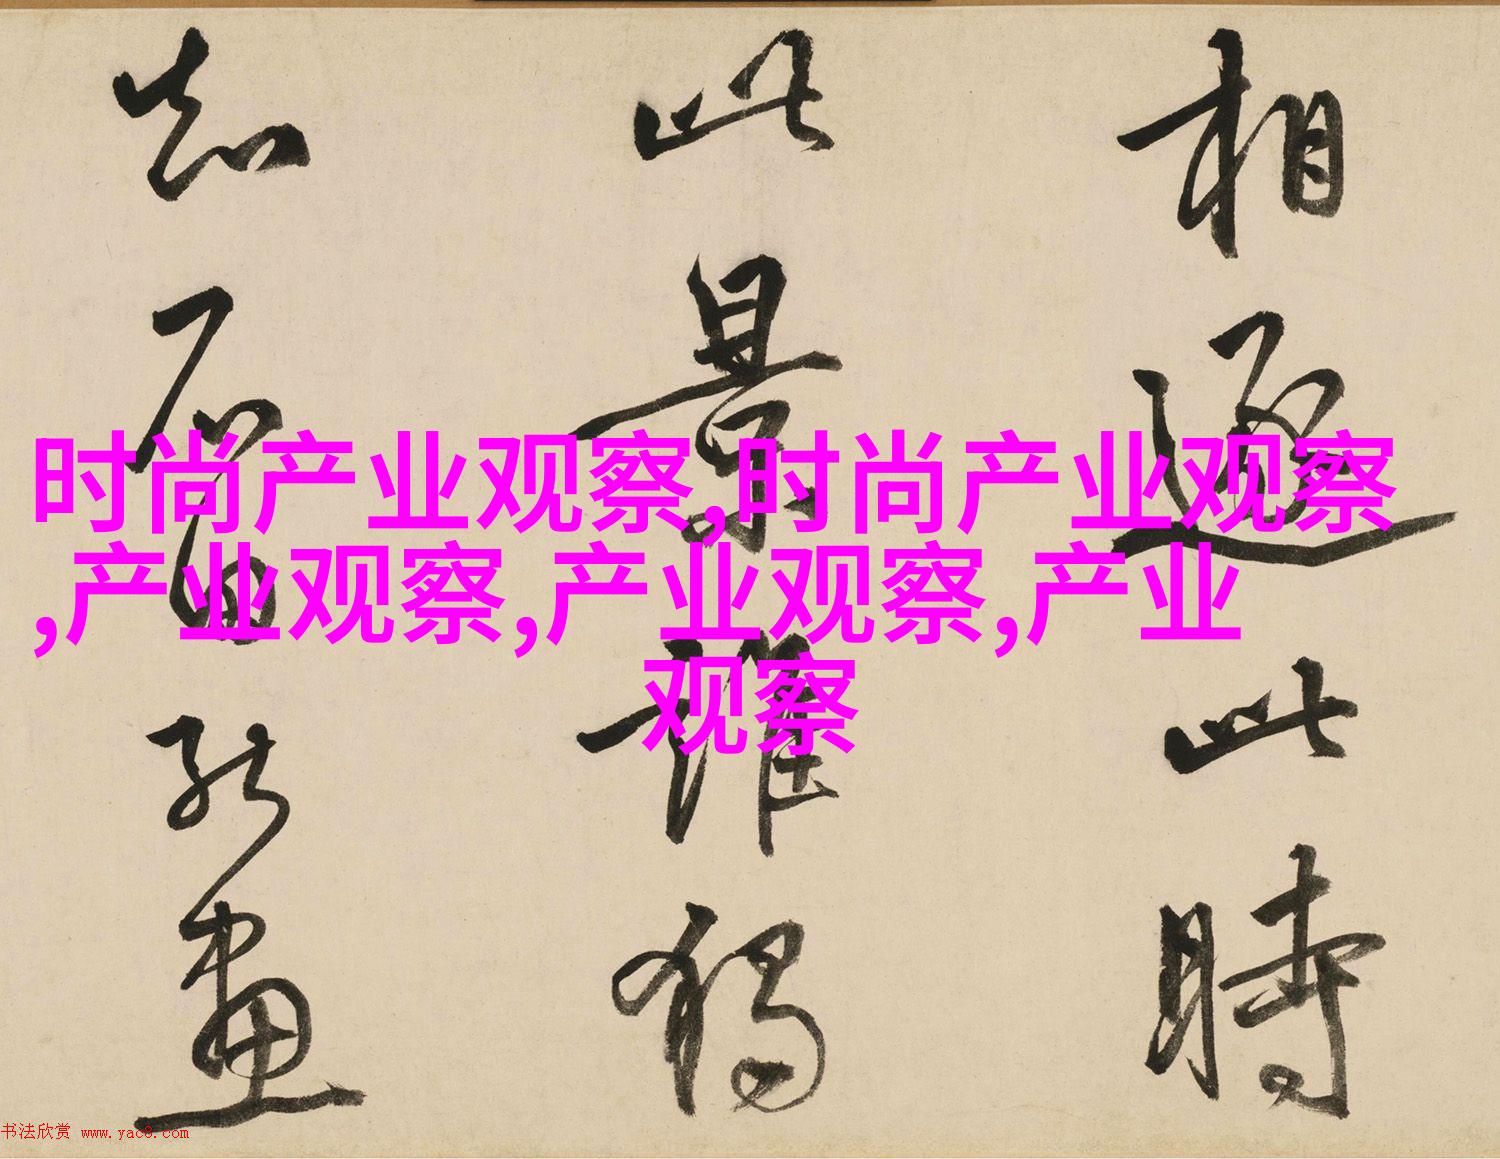 时尚产业观察,时尚产业观察
,产业观察,产业观察,产业
观察
相逐此時
此景誰獨
知石田能畫
书法欣赏 www.yac8.com